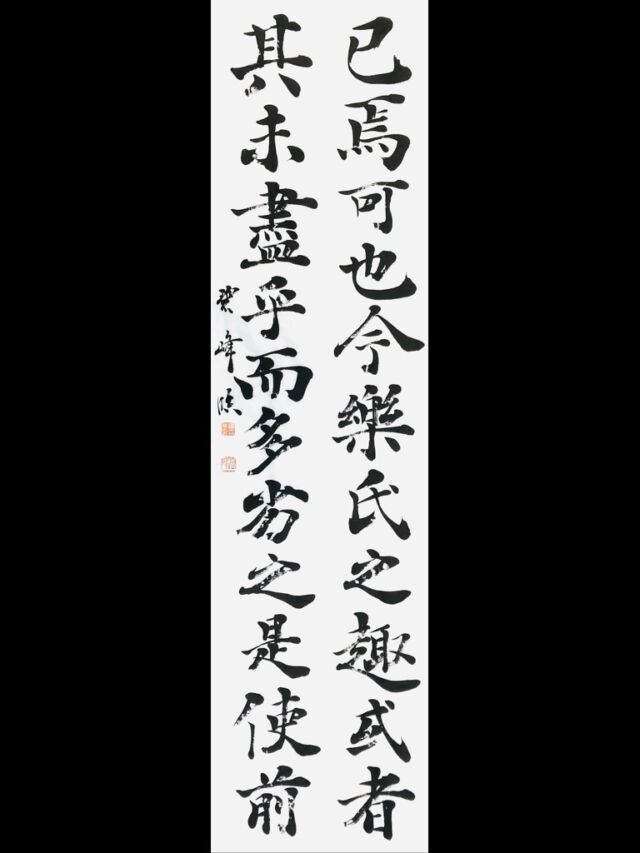 已焉可也今樂氏之趣或者
其未盡乎而多劣之是使前
峰臨